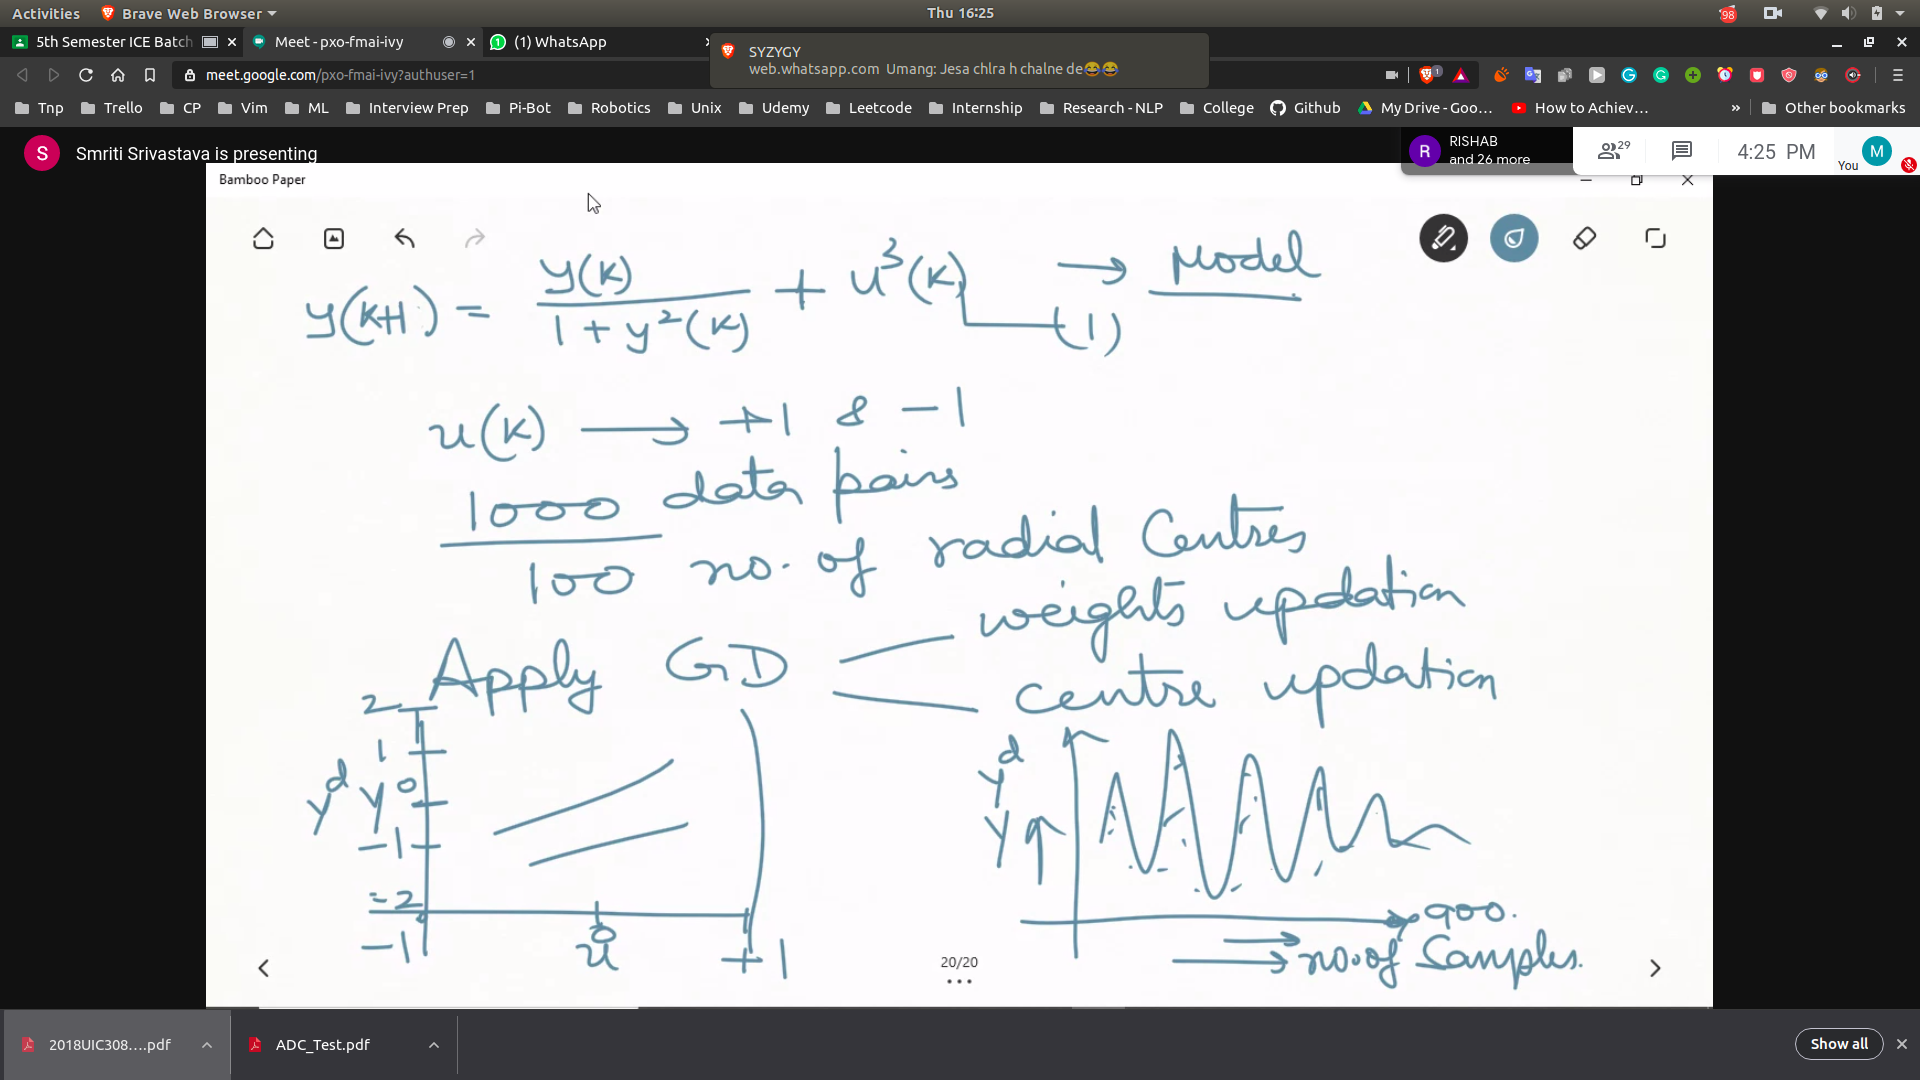 Activities Brave Web Browser Thu 16:25 98
5th Semester ICE Batch Meet - pxo-fmai-ivy (1) WhatsApp
SYZYGY
web.whatsapp.com Umang: Jesa chlra h chalne de😂😂
meet.google.com/pxo-fmai-ivy?authuser=1 1
Tnp Trello CP Vim ML Interview Prep Pi-Bot Robotics Unix Udemy Leetcode Internship Research - NLP College Github My Drive - Goo... How to Achiev... » Other bookmarks
S Smriti Srivastava is presenting
R RISHAB
and 26 more
29 4:25 PM You M
Bamboo Paper
y(k+1) = y(k) / 1 + y²(k) + u³(k) → Model
(1)
u(k) → +1 & -1
1000 data pairs
100 no. of radial Centres
Apply GD weights updation
centre updation
2
1
0
-1
-2
-1
yᵈ y
0
u
+1
yᵈ
y↑
900.
→ no. of Samples.
20/20
2018UIC308....pdf ADC_Test.pdf Show all